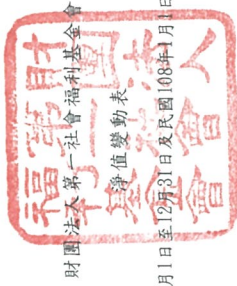 財團法人第一社會福利基金會
淨值變動表
月1日至12月31日及民國108年1月1日
財團法人
第一社會
福利基金會